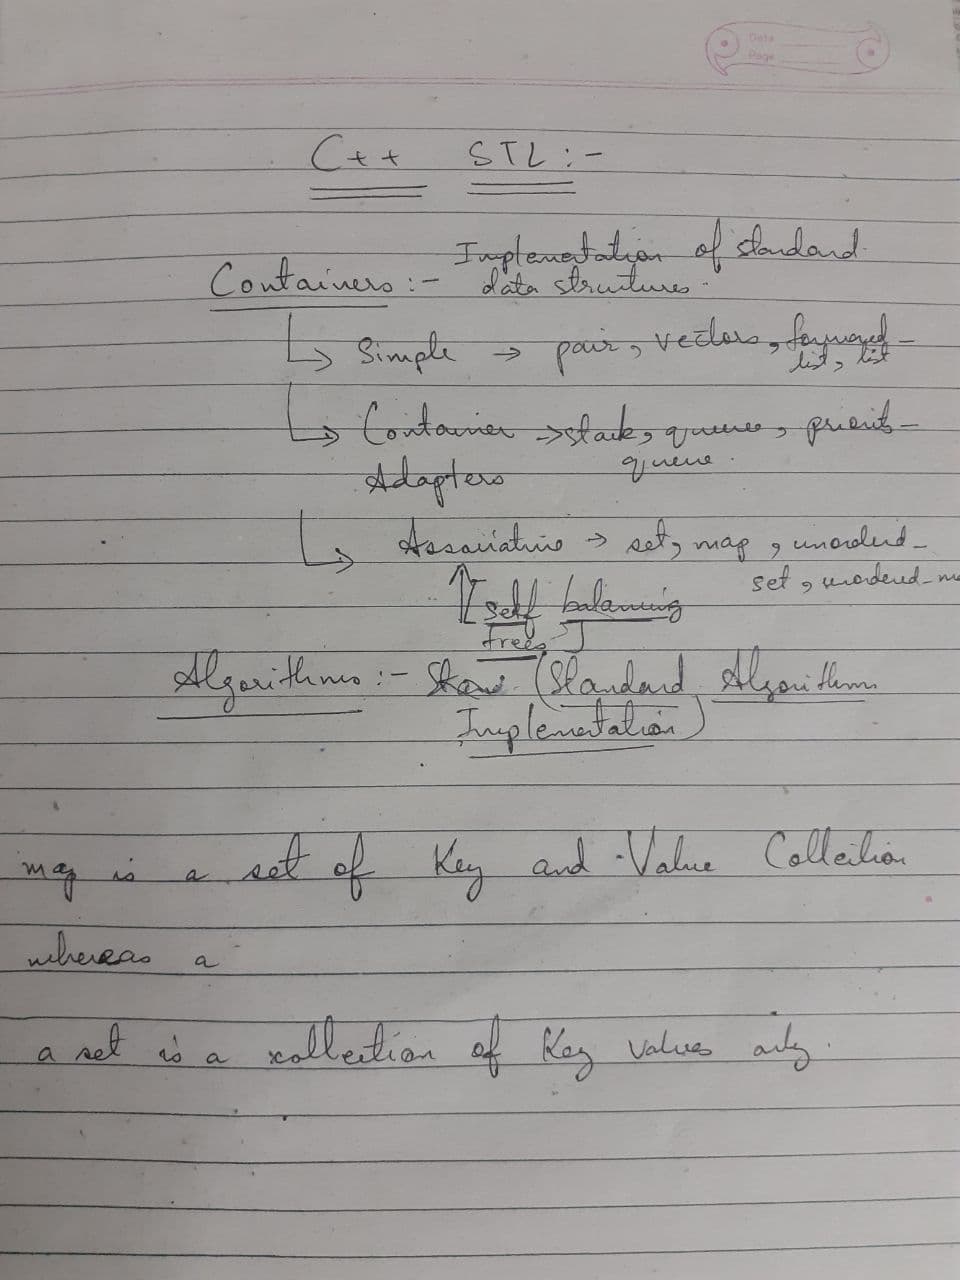 Date
Page
C++ STL :-
Implementation of standard
Containers :- data structures.
Simple → pair, vectors, forward-
list, list
Container → stack, queue, priority-
Adapters queue.
Associative → set, map, unordered-
set, unordered-ma
[self balancing
trees]
Algorithms :- (Standard Algorithm
Implementation)
map is a set of Key and Value Collection
whereas a
a set is a collection of Key values only.